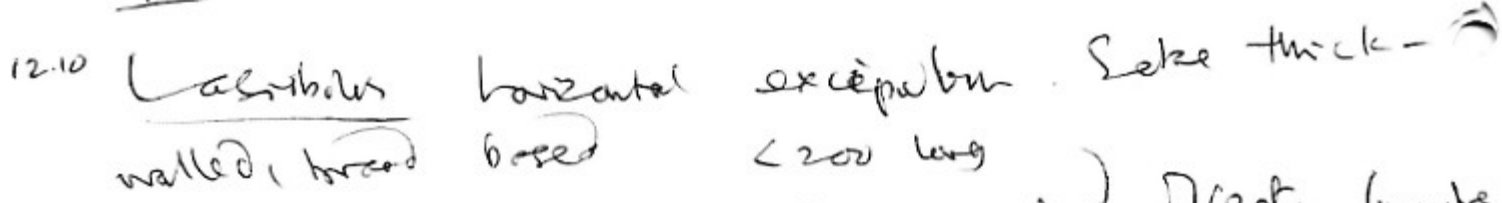 12.10 Lasiobolus horizontal excipulum. Setae thick-
walled, broad based <200 long